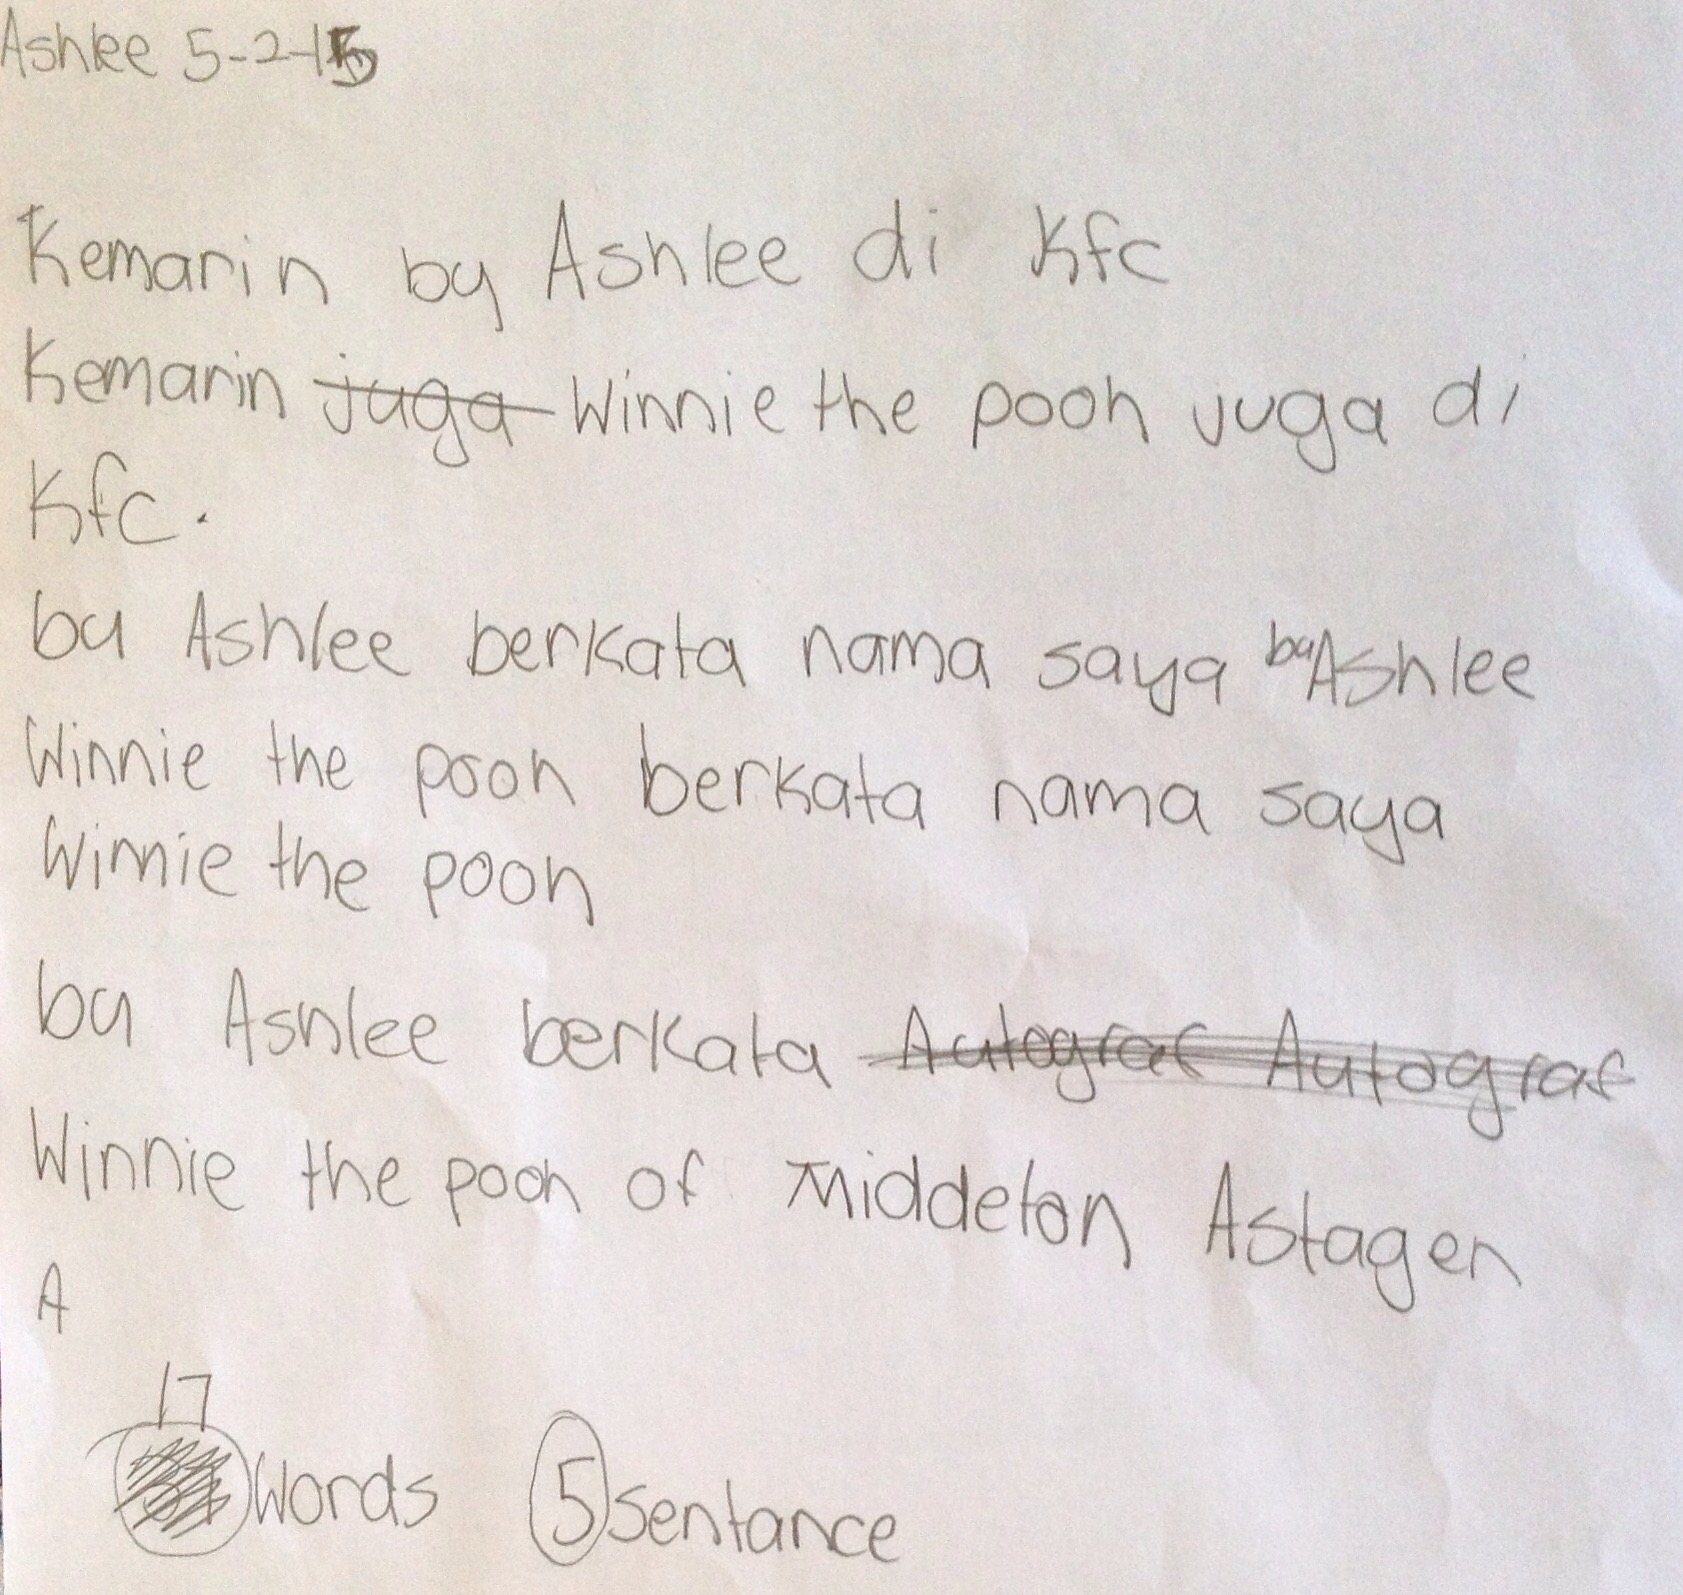 Ashlee 5-2-15
Kemarin bu Ashlee di Kfc
Kemarin juga Winnie the pooh juga di
Kfc.
bu Ashlee berkata nama saya bu Ashlee
Winnie the pooh berkata nama saya
Winnie the pooh
bu Ashlee berkata Autograf Autograf
Winnie the pooh of Middeton Astagen
A
17
Words 5 sentance